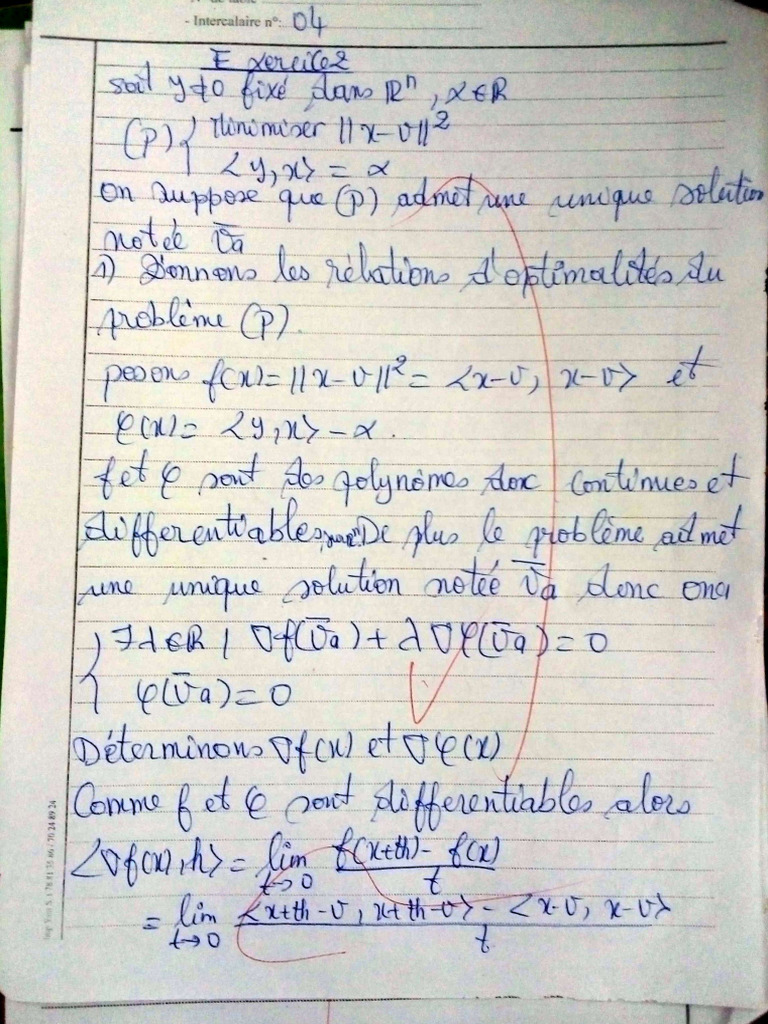 - Intercalaire n°: 04
Exercice 2
soit y ≠ 0 fixé dans ℝⁿ, α ∈ ℝ
(P) { Minimiser ||x - v||²
<y, x> = α
on suppose que (P) admet une unique solution
notée v̄a
1) Donnons les rélations d'optimalités du
problème (P).
posons f(x) = ||x - v||² = <x - v, x - v> et
φ(x) = <y, x> - α.
f et φ sont des polynômes donc continues et
differentiables. De plus le problème admet
une unique solution notée v̄a donc on a
{ ∃ λ ∈ ℝ | ∇f(v̄a) + λ ∇φ(v̄a) = 0
φ(v̄a) = 0
Déterminons ∇f(x) et ∇φ(x)
Comme f et φ sont differentiables alors
<∇f(x), h> = lim t→0 (f(x+th) - f(x)) / t
= lim t→0 (<x+th - v, x+th - v> - <x - v, x - v>) / t